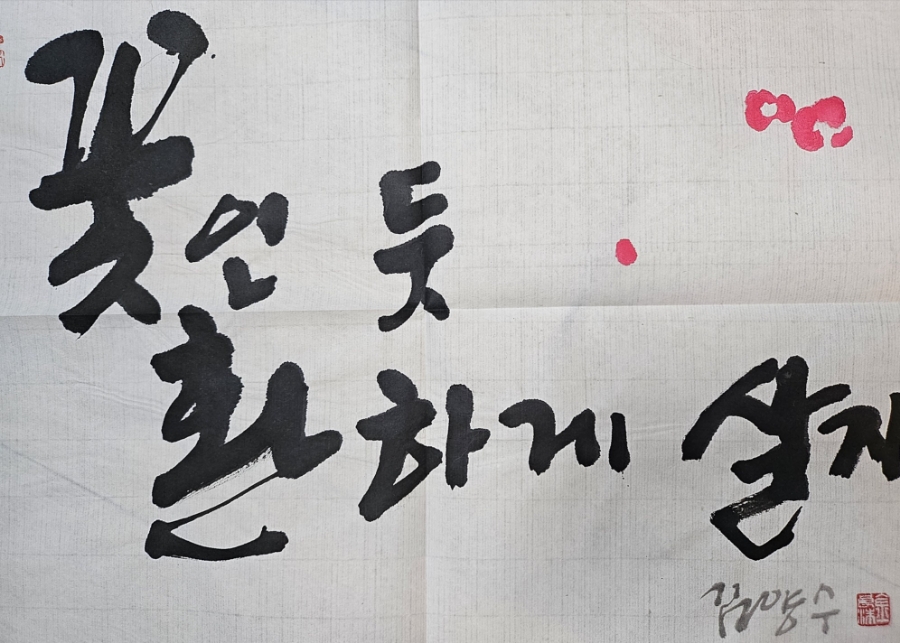 꽃인 듯
환하게 살자
김양수